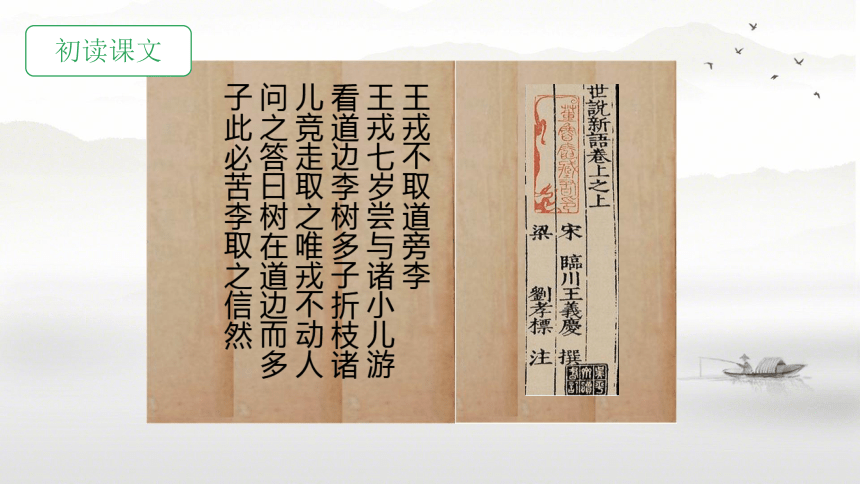 初读课文
王戎不取道旁李
王戎七岁尝与诸小儿游
看道边李树多子折枝诸
儿竞走取之唯戎不动人
问之答曰树在道边而多
子此必苦李取之信然
世說新語卷上之上
宋 臨川王義慶 撰
梁 劉孝標 注